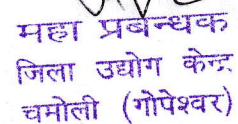 महा प्रबन्धक
जिला उद्योग केन्द्र
चमोली (गोपेश्वर)